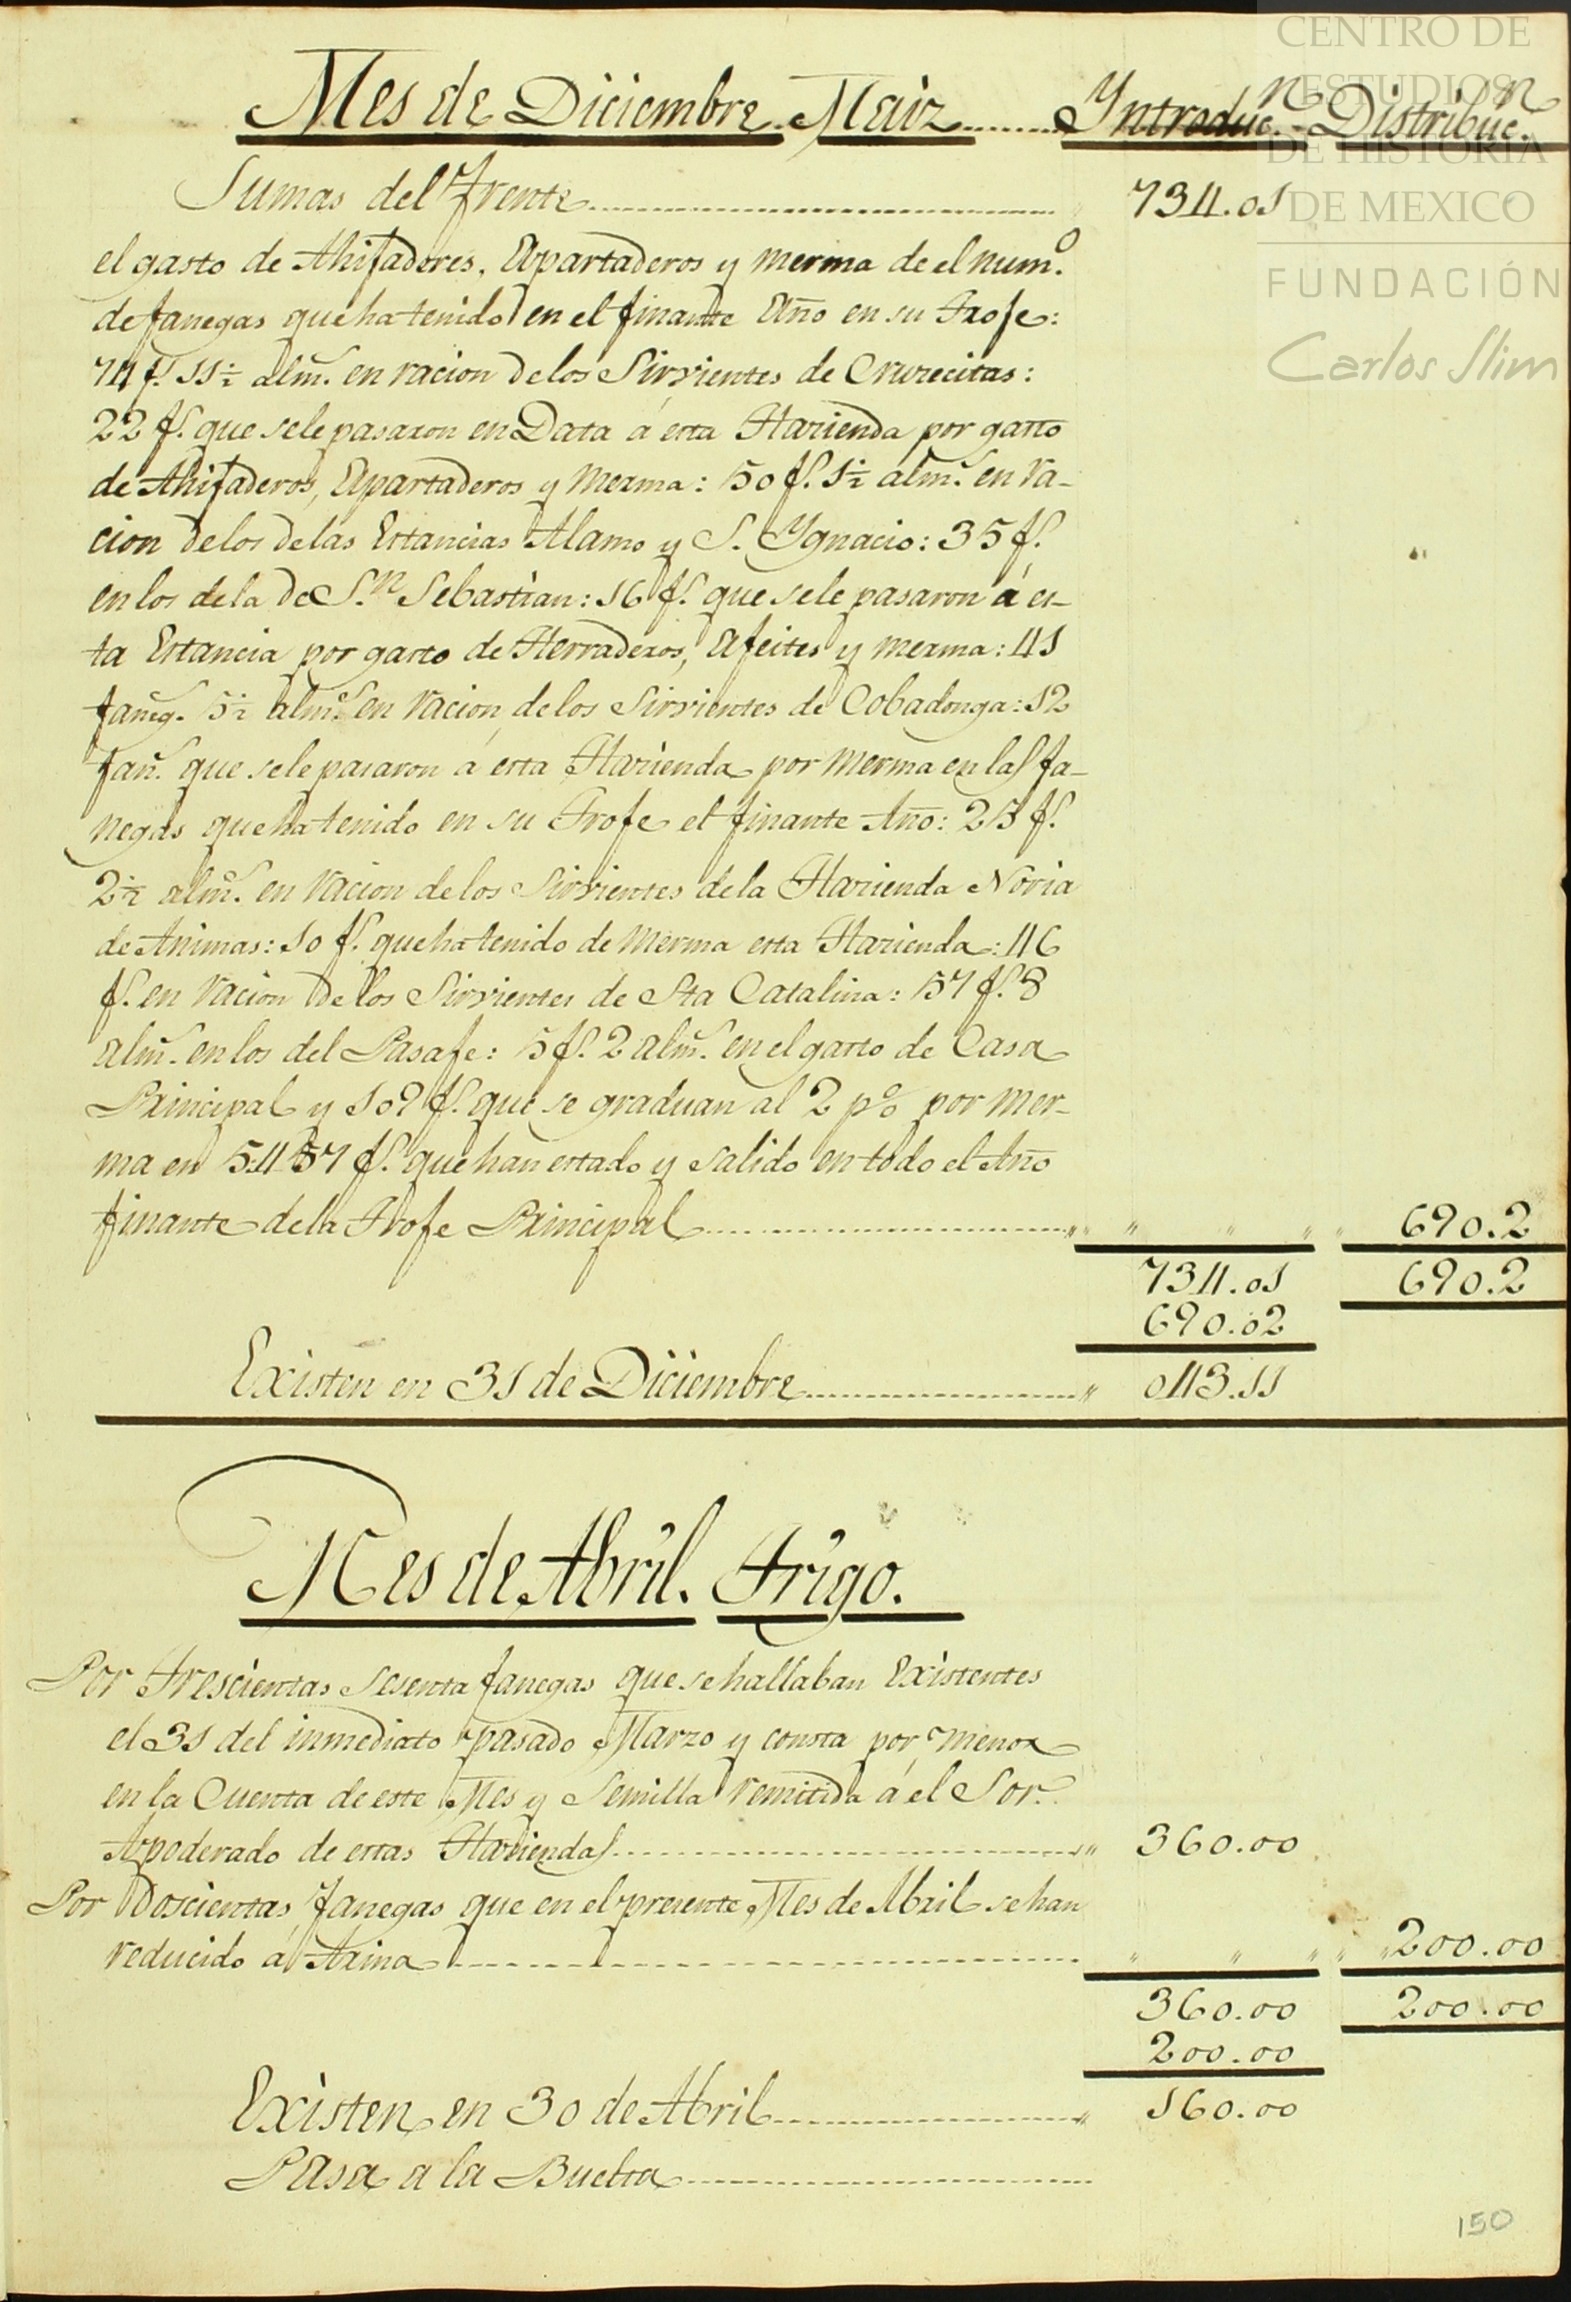 CENTRO DE
ESTUDIOS
DE HISTORIA
DE MEXICO
FUNDACIÓN
Carlos Slim
Mes de Diciembre. Maiz........ Yntroduc.n Distribuc.n
Sumas del Frente........ 734.01
el gasto de Ahijaderos, Apartaderos y merma de el num.o
de fanegas que ha tenido en el finante Año en su Troje:
74 f.s 11½ alm.s en racion de los Sirvientes de Crucecitas:
22 f.s que se le pasaron en Data á esta Hacienda por gasto
de Ahijaderos, Apartaderos y Merma: 50 f.s 1½ alm.s en Ra-
cion de los de las Estancias Alamo y S. Ygnacio: 35 f.s
en los de la de S.n Sebastian: 16 f.s que se le pasaron á es-
ta Estancia por gasto de Herraderos, Afeites y merma: 41
faneg.s 5½ alm.s en Racion de los Sirvientes de Cobadonga: 12
fan.s que se le pasaron á esta Hacienda por Merma en las fa-
negas que ha tenido en su Troje el finante Año: 25 f.s
2½ alm.s en Racion de los Sirvientes de la Hacienda Noria
de Animas: 10 f.s que ha tenido de Merma esta Hacienda: 46
f.s en Racion de los Sirvientes de Sta Catalina: 57 f.s 8
alm.s en los del Pasaje: 5 f.s 2 alm.s en el gasto de Casa
Principal y 109 f.s que se graduan al 2 p% por Mer-
ma en 5457 f.s que han estado y salido en todo el Año
finante de la Troje Principal........ " " " " 690.2
734.01 690.2
690.02
Existen en 31 de Diciembre........ " 043.11
Mes de Abril. Trigo.
Por Trescientas sesenta fanegas que se hallaban Existentes
el 31 del inmediato pasado Marzo y consta por menor
en la Cuenta de este Mes y Semilla remitida á el Sor.
Apoderado de estas Haciendas........ " 360.00
Por Doscientas fanegas que en el presente Mes de Abril se han
reducido á Arina........ " " " " " 200.00
360.00 200.00
200.00
Existen en 30 de Abril........ " 160.00
Pasa a la Buelta........
150